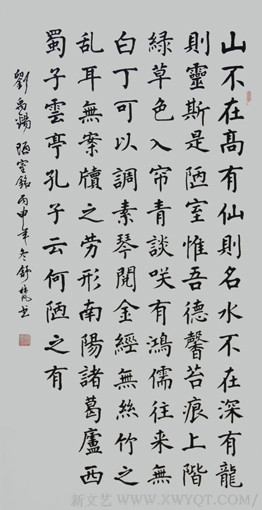 山不在高有仙則名水不在深有龍
則靈斯是陋室惟吾德馨苔痕上階
綠草色入帘青談咲有鴻儒往來無
白丁可以調素琴閱金經無絲竹之
亂耳無案牘之勞形南陽諸葛廬西
蜀子雲亭孔子云何陋之有
劉禹錫 陋室銘 丙申年冬 舒 書
新文艺 WWW.XWYQT.COM/